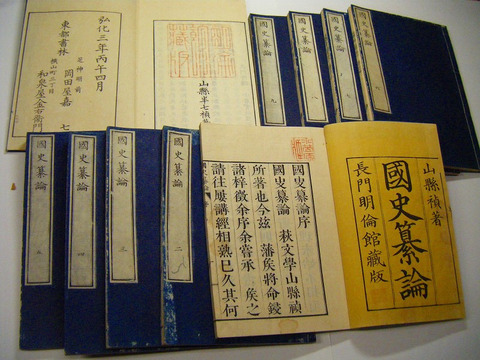 弘化三年丙午四月
東都書林
芝神明前
岡田屋嘉七
横山町三丁目
和泉屋金右衛門
山縣半七禎
國史纂論 九
國史纂論 八
國史纂論 七
國史纂論
國史纂論 五
國史纂論 四
國史纂論 三
國史纂論 二
山縣禎著
國史纂論
長門明倫館藏版
國史纂論序
國史纂論 萩文學山縣禎
所著也今玆 藩矦將命鋟
諸梓徴余序余嘗承 矦之
請往屢講經相熟已久其何